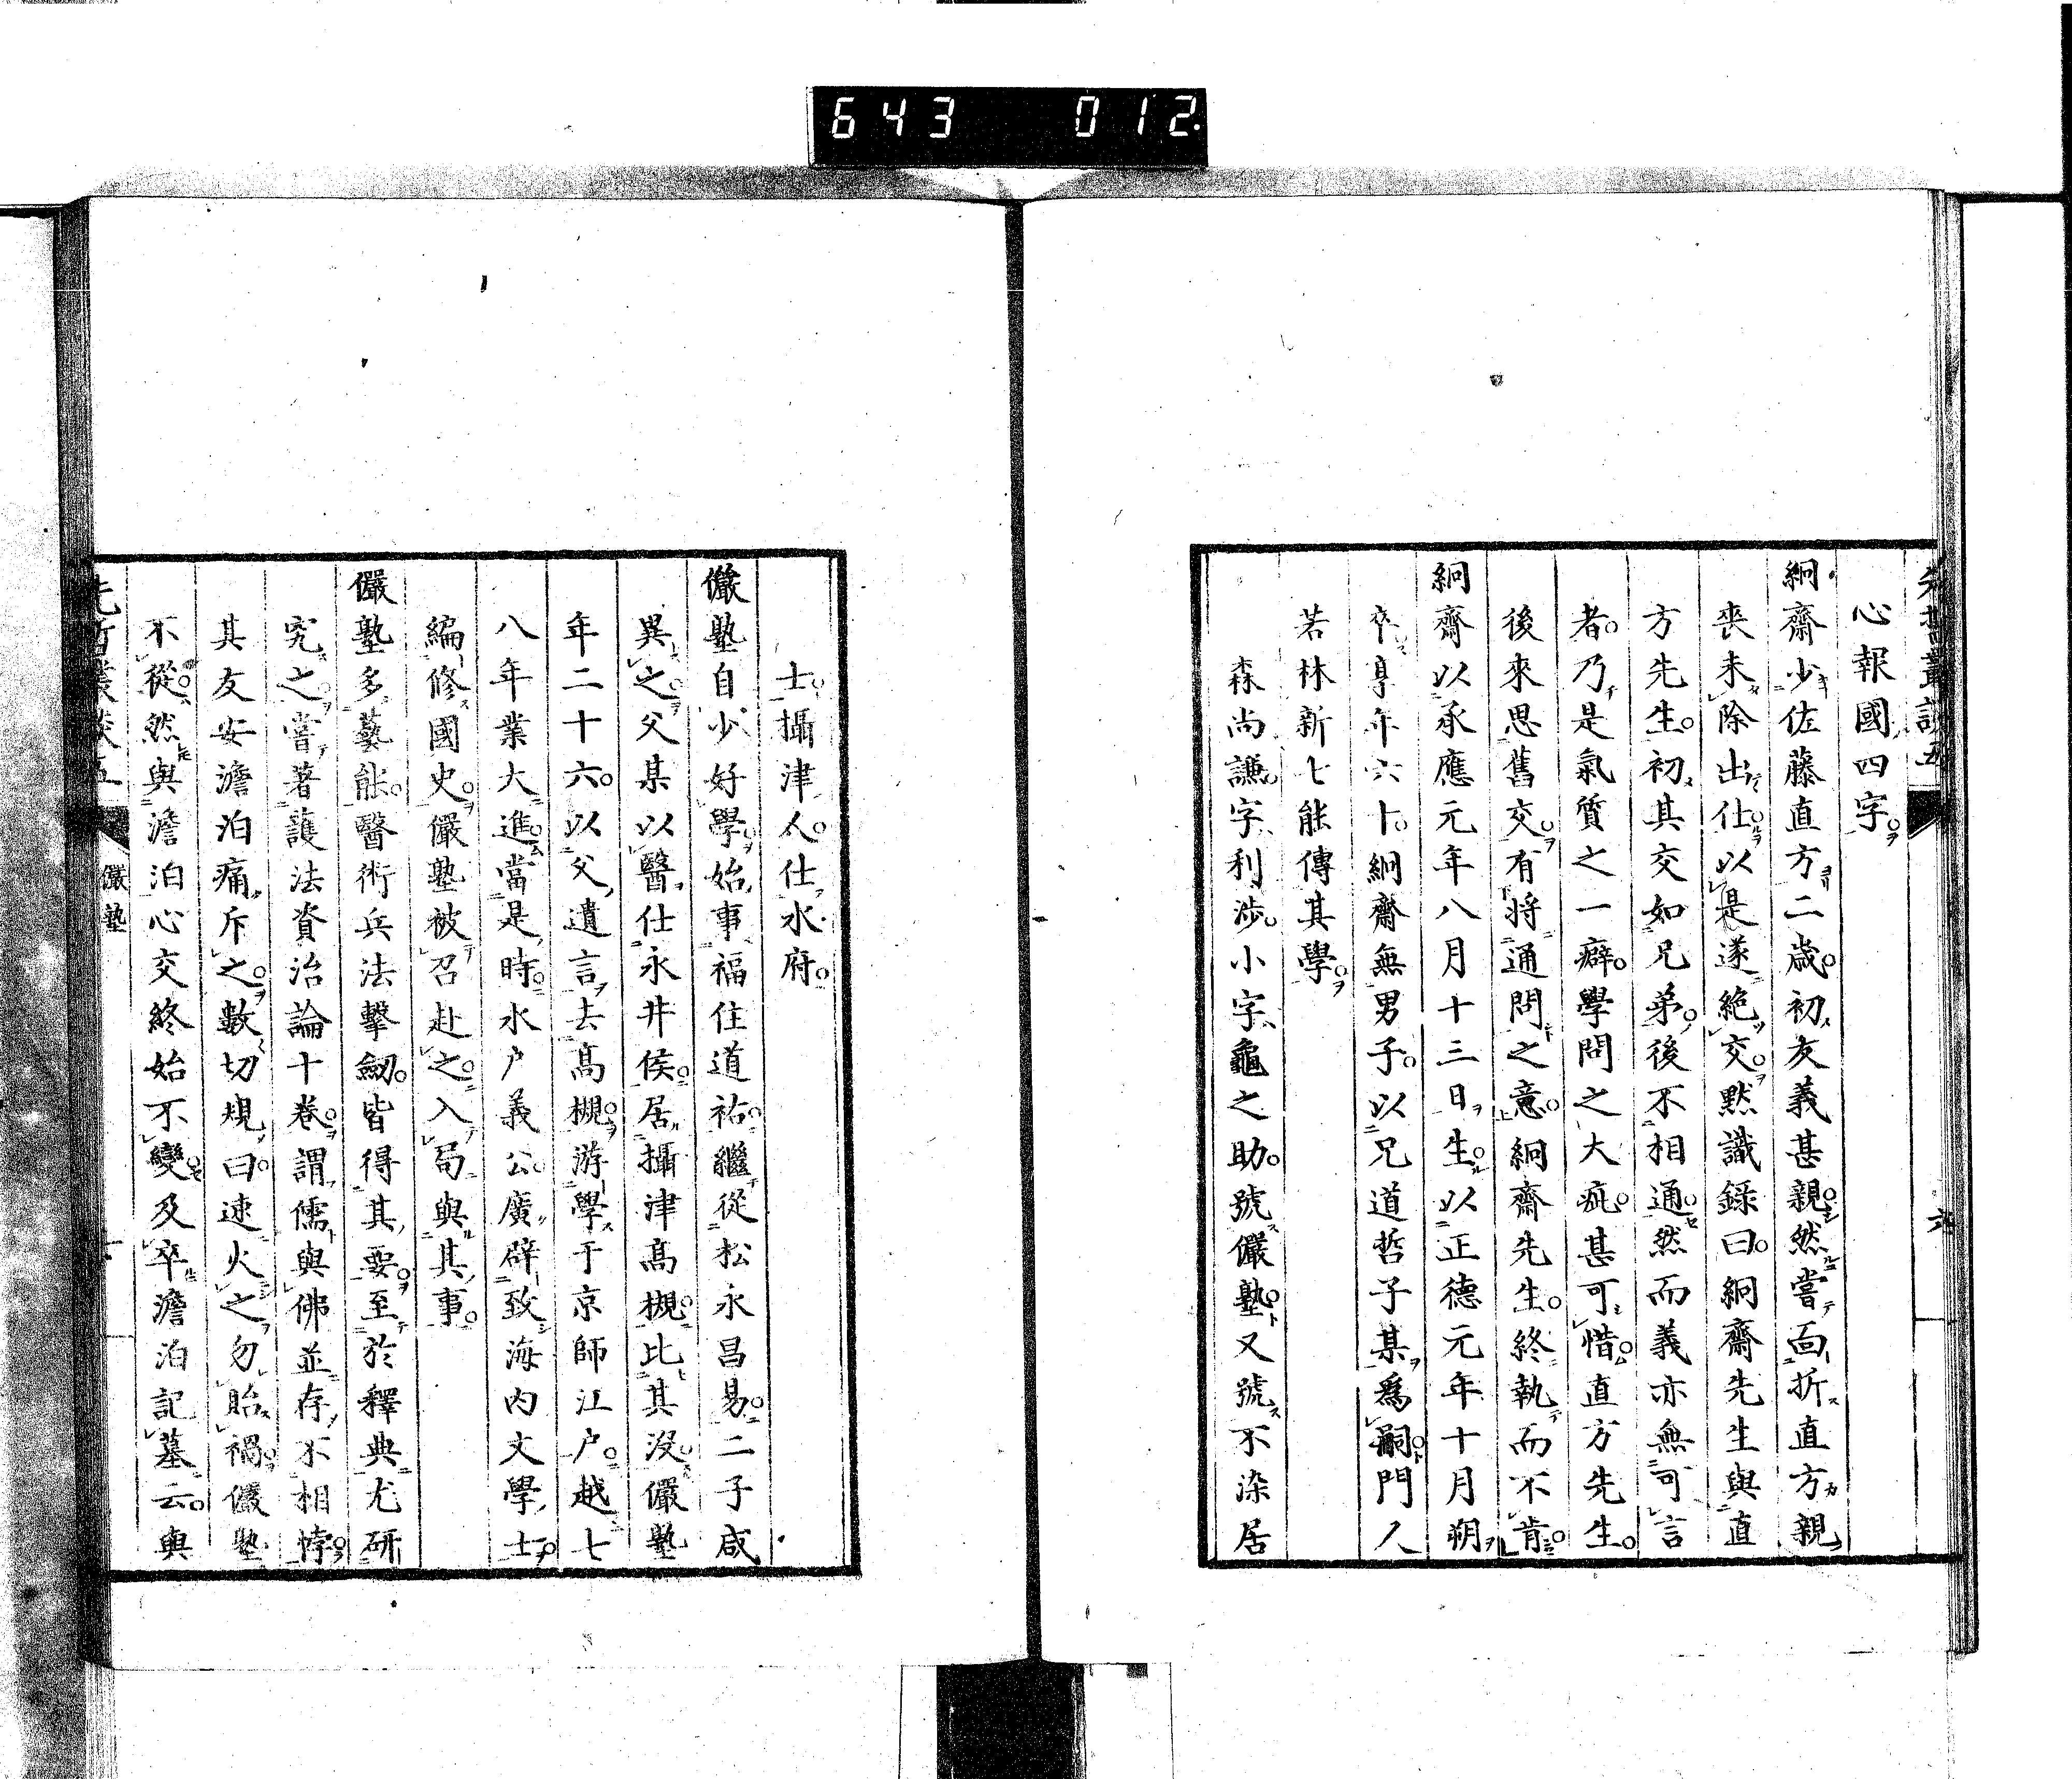 643 012
先哲叢談五
六
心報國四字
絅齋少佐藤直方二歲初友義甚親然嘗面折直方親
喪未除出仕以是遂絕交默識錄曰絅齋先生與直
方先生初其交如兄弟後不相通然而義亦無可言
者乃是氣質之一癖學問之大疵甚可惜直方先生
後來思舊交有將通問之意絅齋先生終執而不肯
絅齋以承應元年八月十三日生以正德元年十月朔
卒享年六十絅齋無男子以兄道哲子某爲嗣門人
若林新七能傳其學
森尚謙字利涉小字龜之助號儼塾又號不染居
士攝津人仕水府
儼塾自少好學始事福住道祐繼從松永昌易二子咸
異之父某以醫仕永井侯居攝津高槻比其沒儼塾
年二十六以父遺言去高槻游學于京師江户越七
八年業大進當是時水户義公廣辟致海內文學士
編修國史儼塾被召赴之入局與其事
儼塾多藝能醫術兵法擊劒皆得其要至於釋典尤研
究之嘗著護法資治論十卷謂儒與佛並存不相悖
其友安澹泊痛斥之數切規曰速火之勿貽禍儼塾
不從然與澹泊心交終始不變及卒澹泊記墓云與
先哲叢談五
儼塾